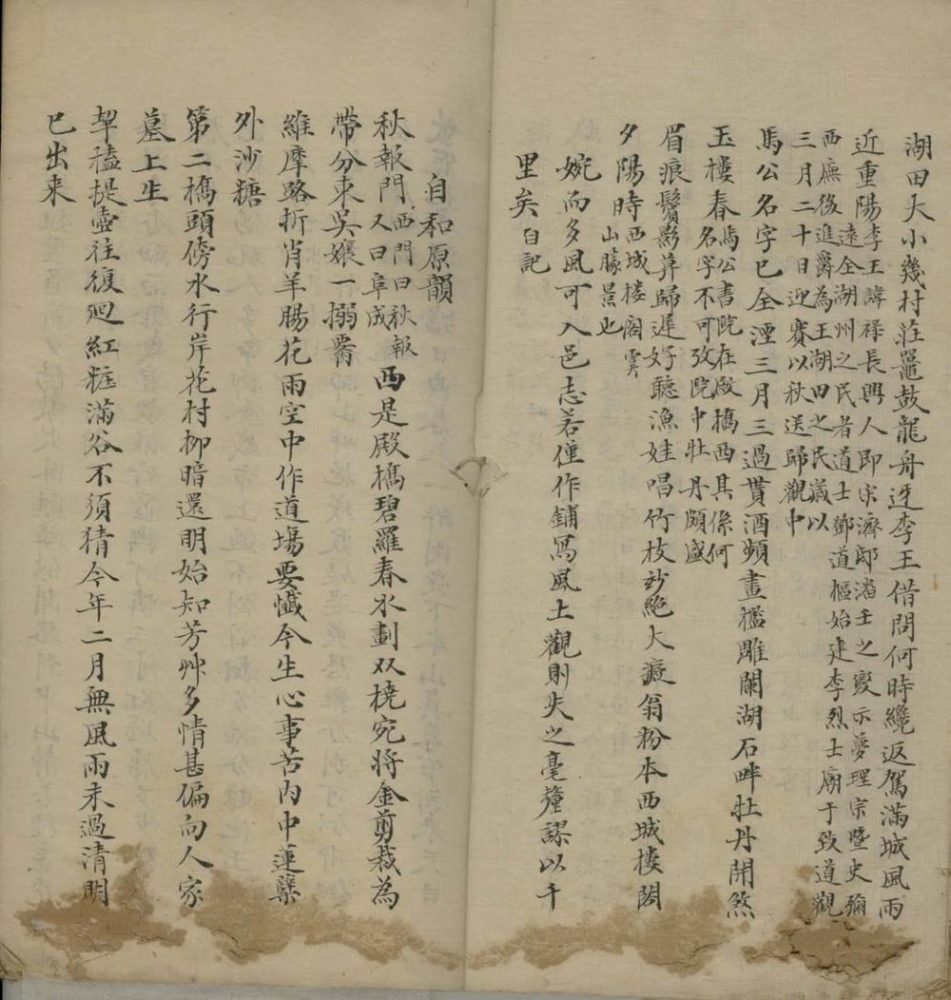 湖田大小幾村莊鼉鼓龍舟迓李王借問何時纔返駕滿城風雨
近重陽
李王諱祿長興人即宋濟邸潘壬之變示夢理宗暨史彌
遠全湖州之民者道士鄧道樞始建李烈士廟于致道觀
西廉後進爵為王湖田之民歲以
三月二十日迎賽以秋送歸觀中
馬公名字已全湮三月三過貰酒頻畫檻雕闌湖石畔牡丹開煞
玉樓春
馬公書院在殿橋西其係何
名字不可攷院中牡丹頗盛
眉痕鬢影葬歸遲好聽漁娃唱竹枝妙絕大癡翁粉本西城樓閣
夕陽時
西城樓閣雲
山勝景也
婉而多風可入邑志若僅作鋪寫風土觀則失之毫釐謬以千
里矣自記
自和原韻
秋報門
西門曰秋報
又曰阜成
西是殿橋碧羅春水劃双橈宛將金剪裁為
帶分束吳孃一搦霄
維摩路折肖羊腸花雨空中作道場要懺今生心事苦內中蓮蘖
外沙糖
第二橋頭傍水行岸花村柳暗還明始知芳艸多情甚偏向人家
墓上生
挈榼提壺往復廻紅粧滿谷不須猜今年二月無風雨未過清明
已出来